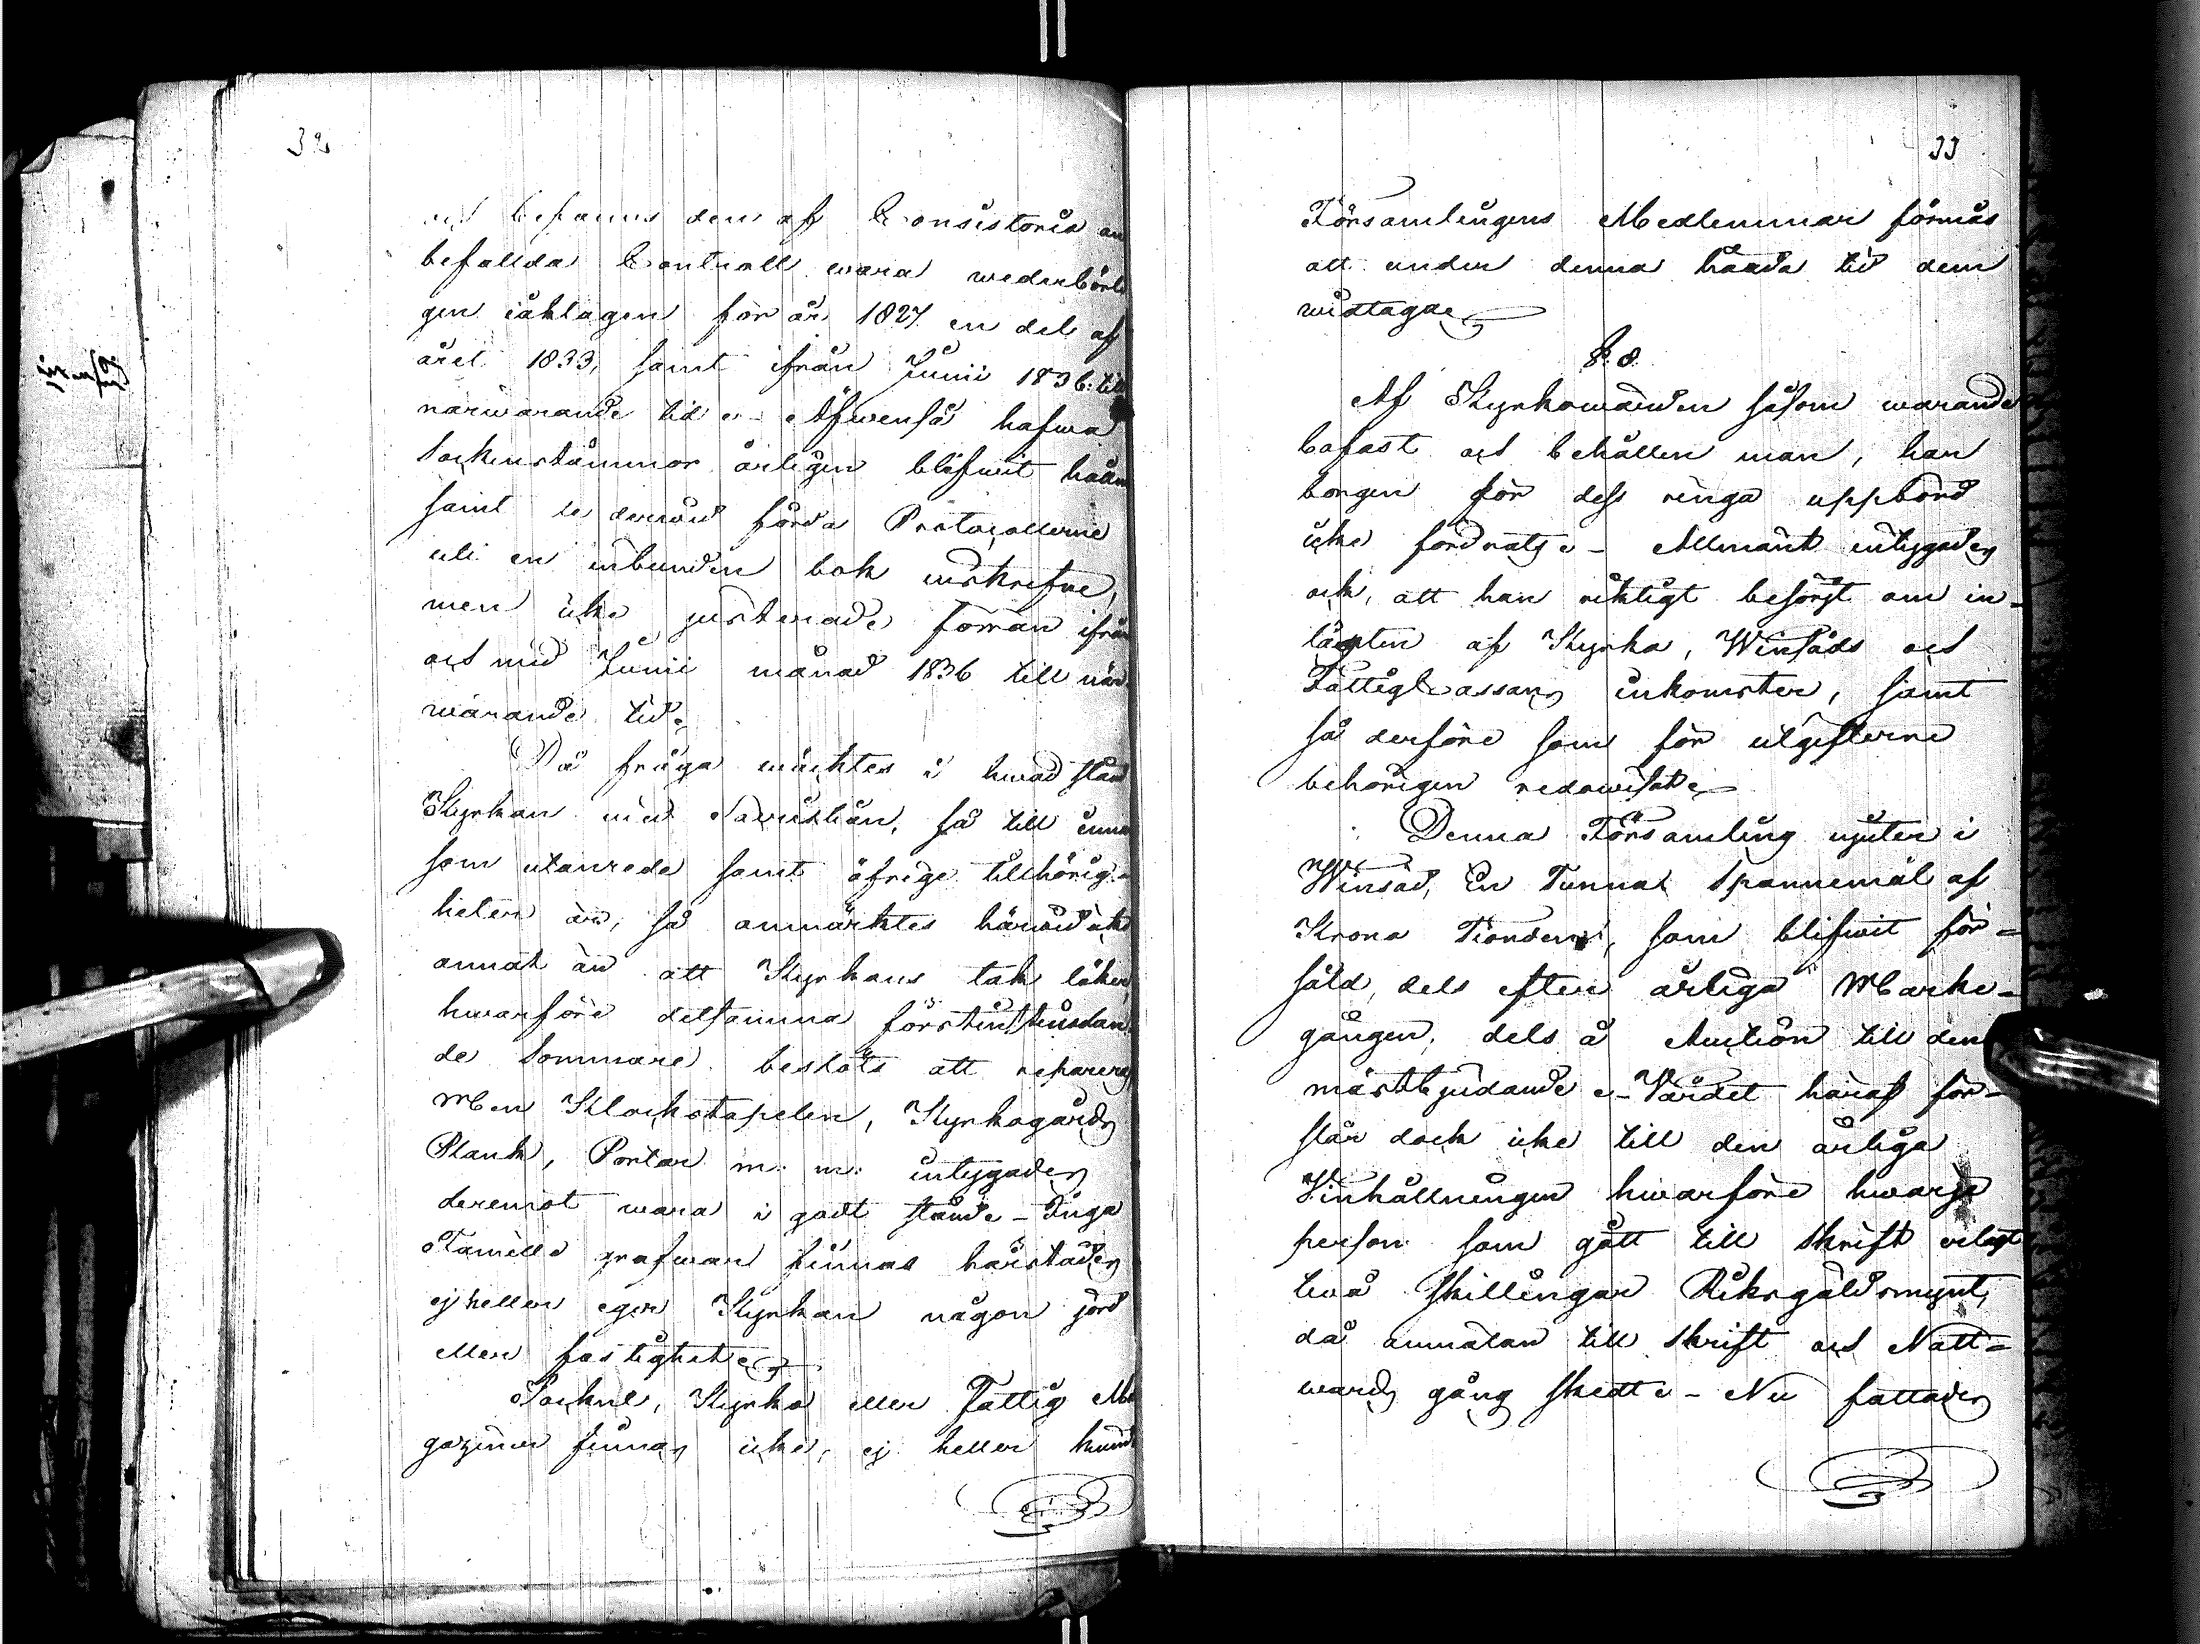 32
och befanns den af Consistorio an
befallda Controll wara wederbörli
gen iaktagen för år 1827 en del af
året 1833, samt ifrån Junii 1836 till
närwarande tid. Äfwenså hafwa
Sockenstämmor årligen blifwit hålln
samt de derwid förda Protocollerne
uti en inbunden bok inskrefne,
men icke justerade förrän ifrån
och med Junii månad 1836 till när
warande tid.
Då fråga wäcktes i hwad stånd
Kyrkan med Sacristian, så till innan
som utanrede samt öfrige tillhörig-
heter äro, så anmärktes härwid icke
annat än att Kyrkans tak läker,
hwarföre detsamma förstinstundan
de Sommare beslöts att reparera,
Men Klockstapelen, Kyrkogårds
Plank, Portar m. m. intygades
deremot wara i godt stånd - Inga
Famille grafwar finnas härstädes,
ej heller eger Kyrkan någon jord
eller fastighet.
Sockne, Kyrko eller Fattig Ma
gaziner finnas icke, ej heller kund
33
Församlingens Medlemmar förmås
att under denna hårda tid dem
widtaga.
§. 8.
Af Kyrkowärden såsom warande
bofast och behållen man, har
borgen för dess ringa uppbörd
icke fordrats - Allmänt intygades
ock, att han riktigt besörgt om in-
täkten af Kyrko, Winsäds och
Fattigcassans inkomster, samt
så derföre som för utgifterne
behörigen redowisat.
Denna Församling njuter i
Winsäd, En Tunna Spannemål af
Krono Tionden, som blifwit för-
såld, dels efter årliga Marke-
gången, dels å Auction till den
mästbjudande - Wärdet häraf för-
slår dock icke till den årliga
Vinhållningen hwarföre hwarje
person som gått till Skrift erlagt
twå Skillingar Riksgäldsmynt,
då anmälan till Skrift och Natt-
wards gång skedt - Nu fattades